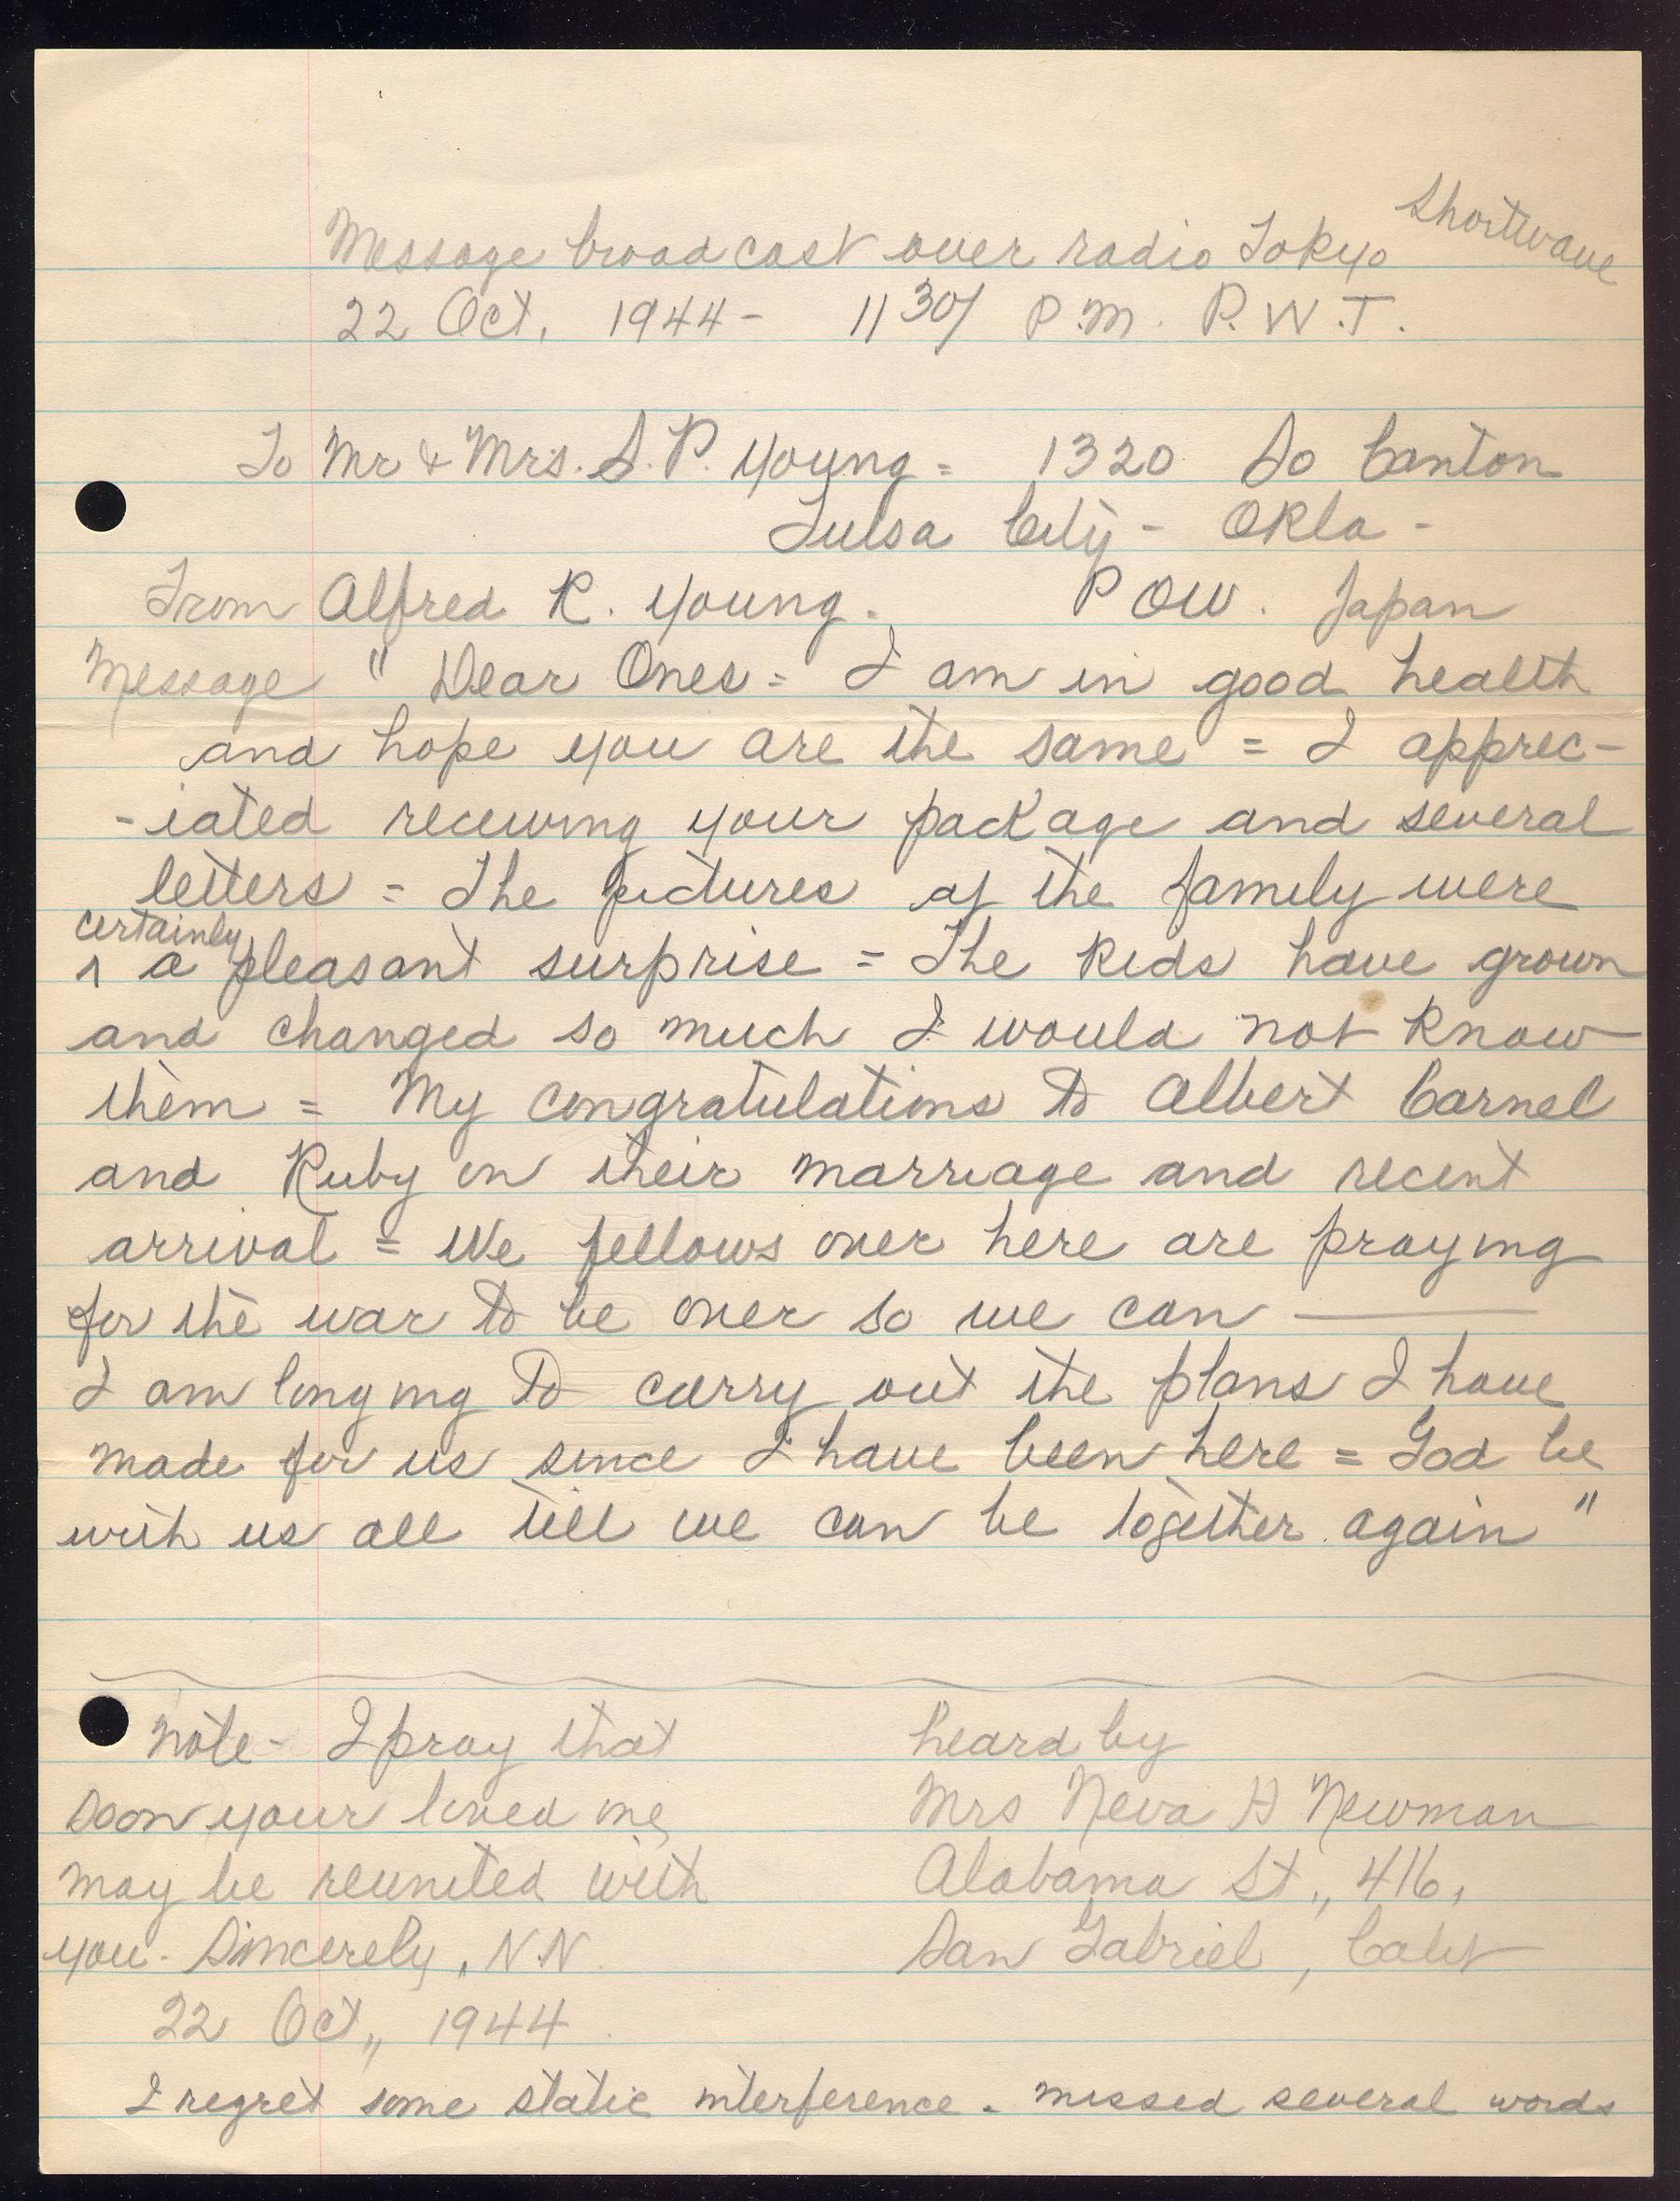 Message broadcast over radio Tokyo Shortwave
22 Oct, 1944 - 11 30/ P.M. P.W.T.
To Mr & Mrs. S. P. Young = 1320 So Canton
Tulsa City - Okla -
From Alfred R. Young. P OW. Japan
Message " Dear Ones = I am in good health
and hope you are the same = I apprec-
-iated receiving your package and several
letters = The pictures of the family were
certainly
^ a pleasant surprise = The Kids have grown
and changed so much I would not know
them = My congratulations to Albert Carnel
and Ruby on their marriage and recent
arrival = We fellows over here are praying
for the war to be over so we can ———
I am longing to carry out the plans I have
made for us since I have been here = God be
with us all till we can be together again "
Note - I pray that
soon your loved one
may be reunited with
you - Sincerely, N.N.
22 Oct,, 1944
heard by
Mrs Neva H Newman
Alabama St,, 416,
San Gabriel, Calif
I regret some static interference - missed several words